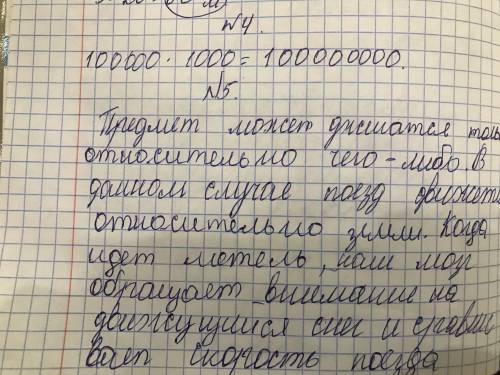 N4.
100000 · 1000 = 100000000.
N5.
Предмет может двигатся толь
относительно чего-либо. В
данном случае поезд движет
относительно земли. Когда
идет метель, наш мозг
обращает внимание на
движущийся снег и сравни
вает скорость поезда